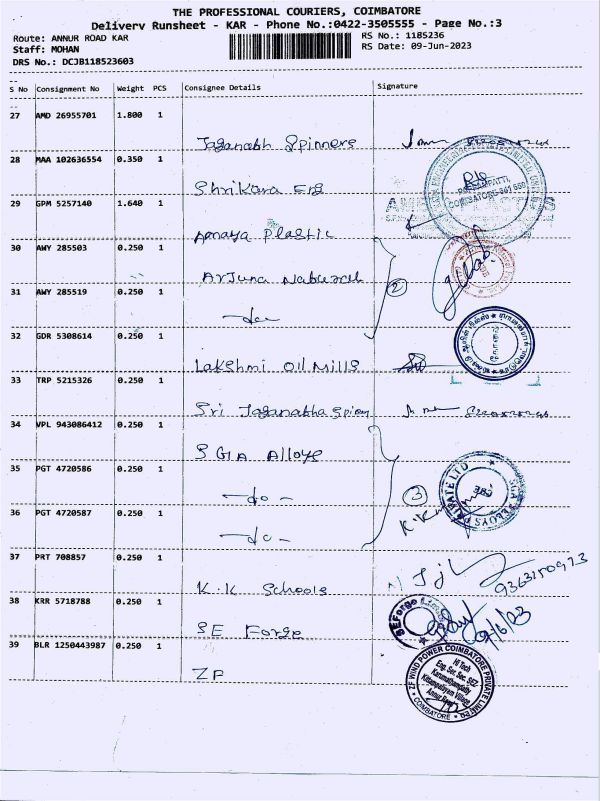 THE PROFESSIONAL COURIERS, COIMBATORE
Delivery Runsheet - KAR - Phone No.:0422-3505555 - Page No.:3
Route: ANNUR ROAD KAR RS No.: 1185236
Staff: MOHAN RS Date: 09-Jun-2023
DRS No.: DCJB118523603
S No Consignment No Weight PCS Consignee Details Signature
27 AMD 26955701 1.800 1
Jaganabh Spinners
28 MAA 102636554 0.350 1
Shrikara Eng
29 GPM 5257140 1.640 1
COIMBATORE-641
Amaya Plastic
30 AWY 285503 0.250 1
Arjuna
31 AWY 285519 0.250 1
2
-do-
32 GDR 5308614 0.250 1
Lakshmi Oil Mills
33 TRP 5215326 0.250 1
Sri Jaganabha
34 VPL 943086412 0.250 1
SGA Alloys
35 PGT 4720586 0.250 1
-do-
3
SGA ALLOYS PRIVATE LTD
36 PGT 4720587 0.250 1
-do-
37 PRT 708857 0.250 1
K.K Schools
9363150973
38 KRR 5718788 0.250 1
SE Forge
SE Forge
9/6/23
39 BLR 1250443987 0.250 1
ZF
ZF WIND POWER COIMBATORE PRIVATE LIMITED
Hi Tech
Eng. Sec. Sec. SEZ
Karumathampatty
Kittampalayam Village
Annur Road
COIMBATORE